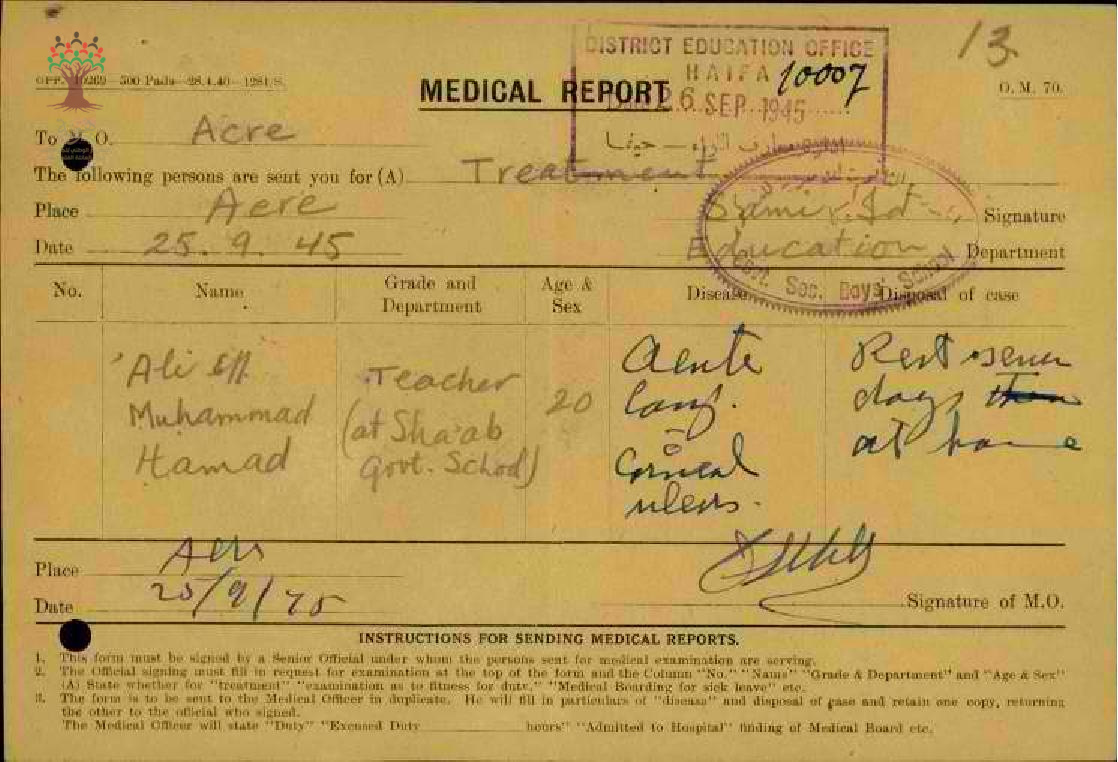 13
DISTRICT EDUCATION OFFICE
HAIFA 10007
26 SEP 1945
500 Pads—28.4.40—1281/S.
MEDICAL REPORT
O. M. 70.
To M. O. Acre
The following persons are sent you for (A) Treatment
Place Acre Signature
Date 25. 9. 45 Education Department
Govt. Sec. Boys' School
No. Name Grade and Department Age & Sex Disease Disposal of case
Ali Eff. Teacher 20 Acute Rest seven
Muhammad (at Sha'ab conj. days
Hamad Govt. School) Corneal at home
ulcers.
Place Acre
Date 25/9/45 Signature of M.O.
INSTRUCTIONS FOR SENDING MEDICAL REPORTS.
1. This form must be signed by a Senior Official under whom the persons sent for medical examination are serving.
2. The Official signing must fill in request for examination at the top of the form and the Column "No." "Name" "Grade & Department" and "Age & Sex"
(A) State whether for "treatment" "examination as to fitness for duty," "Medical Boarding for sick leave" etc.
3. The form is to be sent to the Medical Officer in duplicate. He will fill in particulars of "disease" and disposal of case and retain one copy, returning
the other to the official who signed.
The Medical Officer will state "Duty" "Excused Duty hours" "Admitted to Hospital" finding of Medical Board etc.